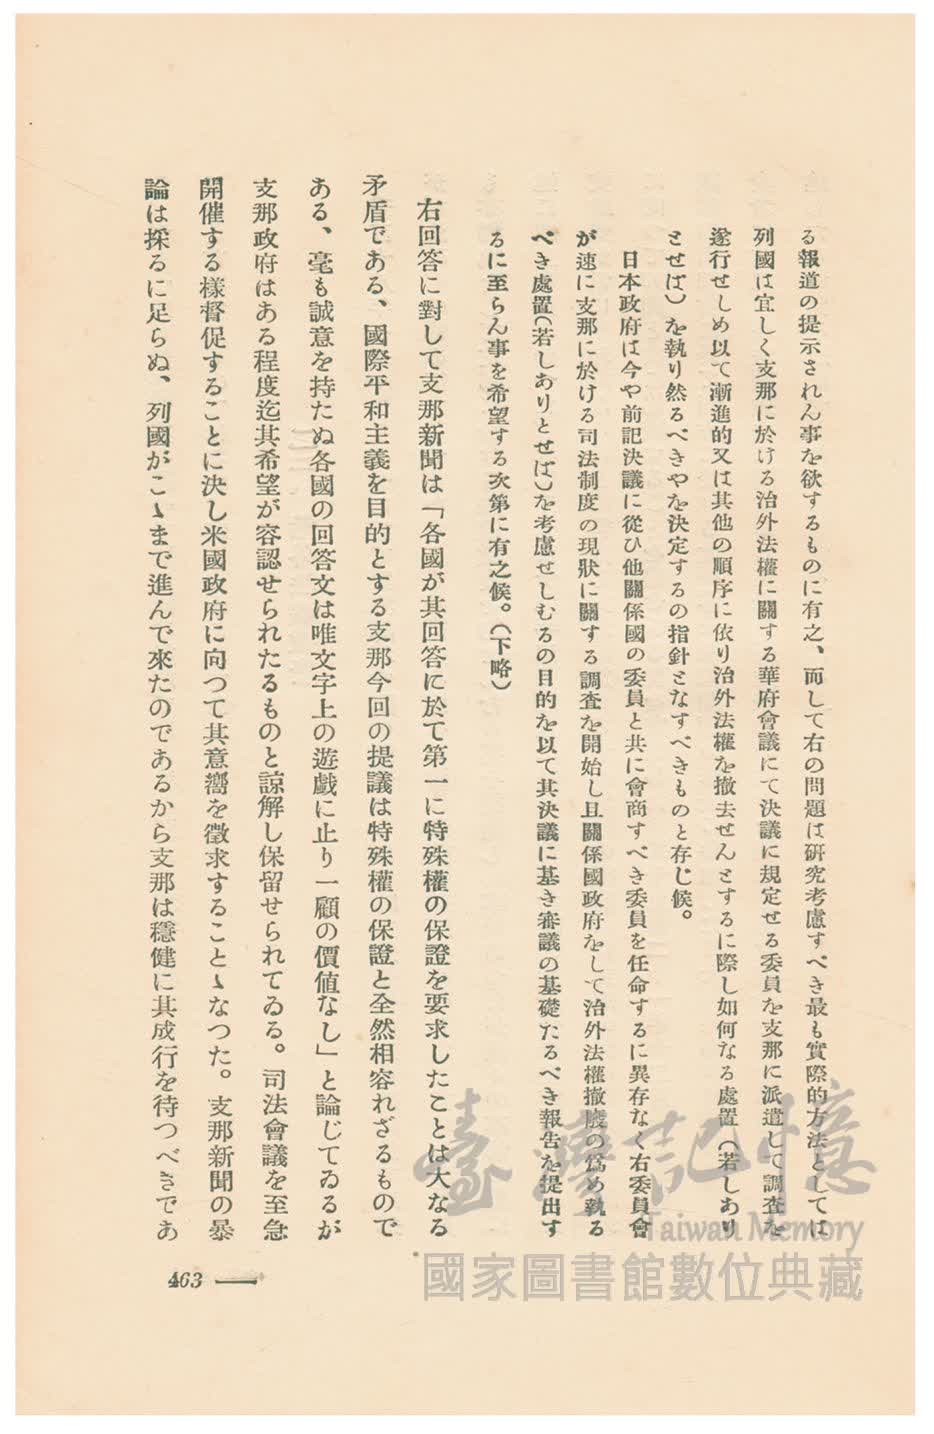 る報道の提示されん事を欲するものに有之、而して右の問題は研究考慮すべき最も實際的方法としては
列國は宜しく支那に於ける治外法權に關する華府會議にて決議に規定せる委員を支那に派遣して調査を
遂行せしめ以て漸進的又は其他の順序に依り治外法權を撤去せんとするに際し如何なる處置（若しあり
とせば）を執り然るべきやを決定するの指針となすべきものと存じ候。
日本政府は今や前記決議に從ひ他關係國の委員と共に會商すべき委員を任命するに異存なく右委員會
が速に支那に於ける司法制度の現狀に關する調査を開始し且關係國政府をして治外法權撤廢の爲め執る
べき處置（若しありとせば）を考慮せしむるの目的を以て其決議に基き審議の基礎たるべき報告を提出す
るに至らん事を希望する次第に有之候。（下略）
右回答に對して支那新聞は「各國が其回答に於て第一に特殊權の保證を要求したことは大なる
矛盾である、國際平和主義を目的とする支那今回の提議は特殊權の保證と全然相容れざるもので
ある、毫も誠意を持たぬ各國の回答文は唯文字上の遊戲に止り一顧の價値なし」と論じてゐるが
支那政府はある程度迄其希望が容認せられたるものと諒解し保留せられてゐる。司法會議を至急
開催する樣督促することに決し米國政府に向つて其意嚮を徵求することゝなつた。支那新聞の暴
論は採るに足らぬ、列國がこゝまで進んで來たのであるから支那は穩健に其成行を待つべきであ
463
臺灣記憶
Taiwan Memory
國家圖書館數位典藏